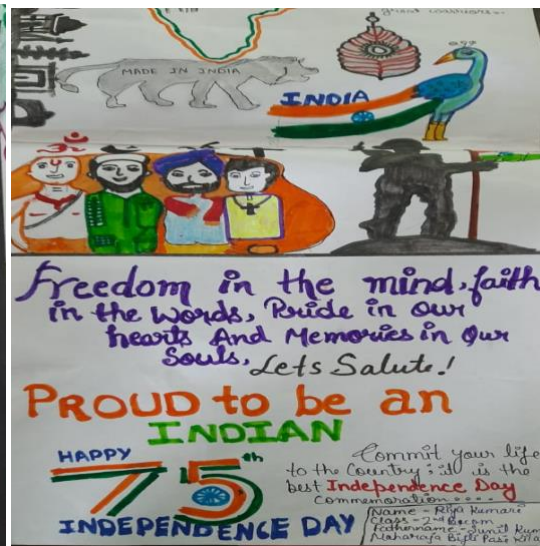 great warriors..
MADE IN INDIA
INDIA
ॐ
Freedom in the mind, faith
in the Words, Pride in our
hearts And Memories in Our
Souls, Lets Salute!
PROUD to be an
INDIAN
HAPPY
75th
INDEPENDENCE DAY
Commit your life
to the Country; it is the
best Independence Day
Commemoration ....
Name - Riya Kumari
Class - 2nd Bcom
Fathername - Sunil Kum
Maharaja Bijli Pasi